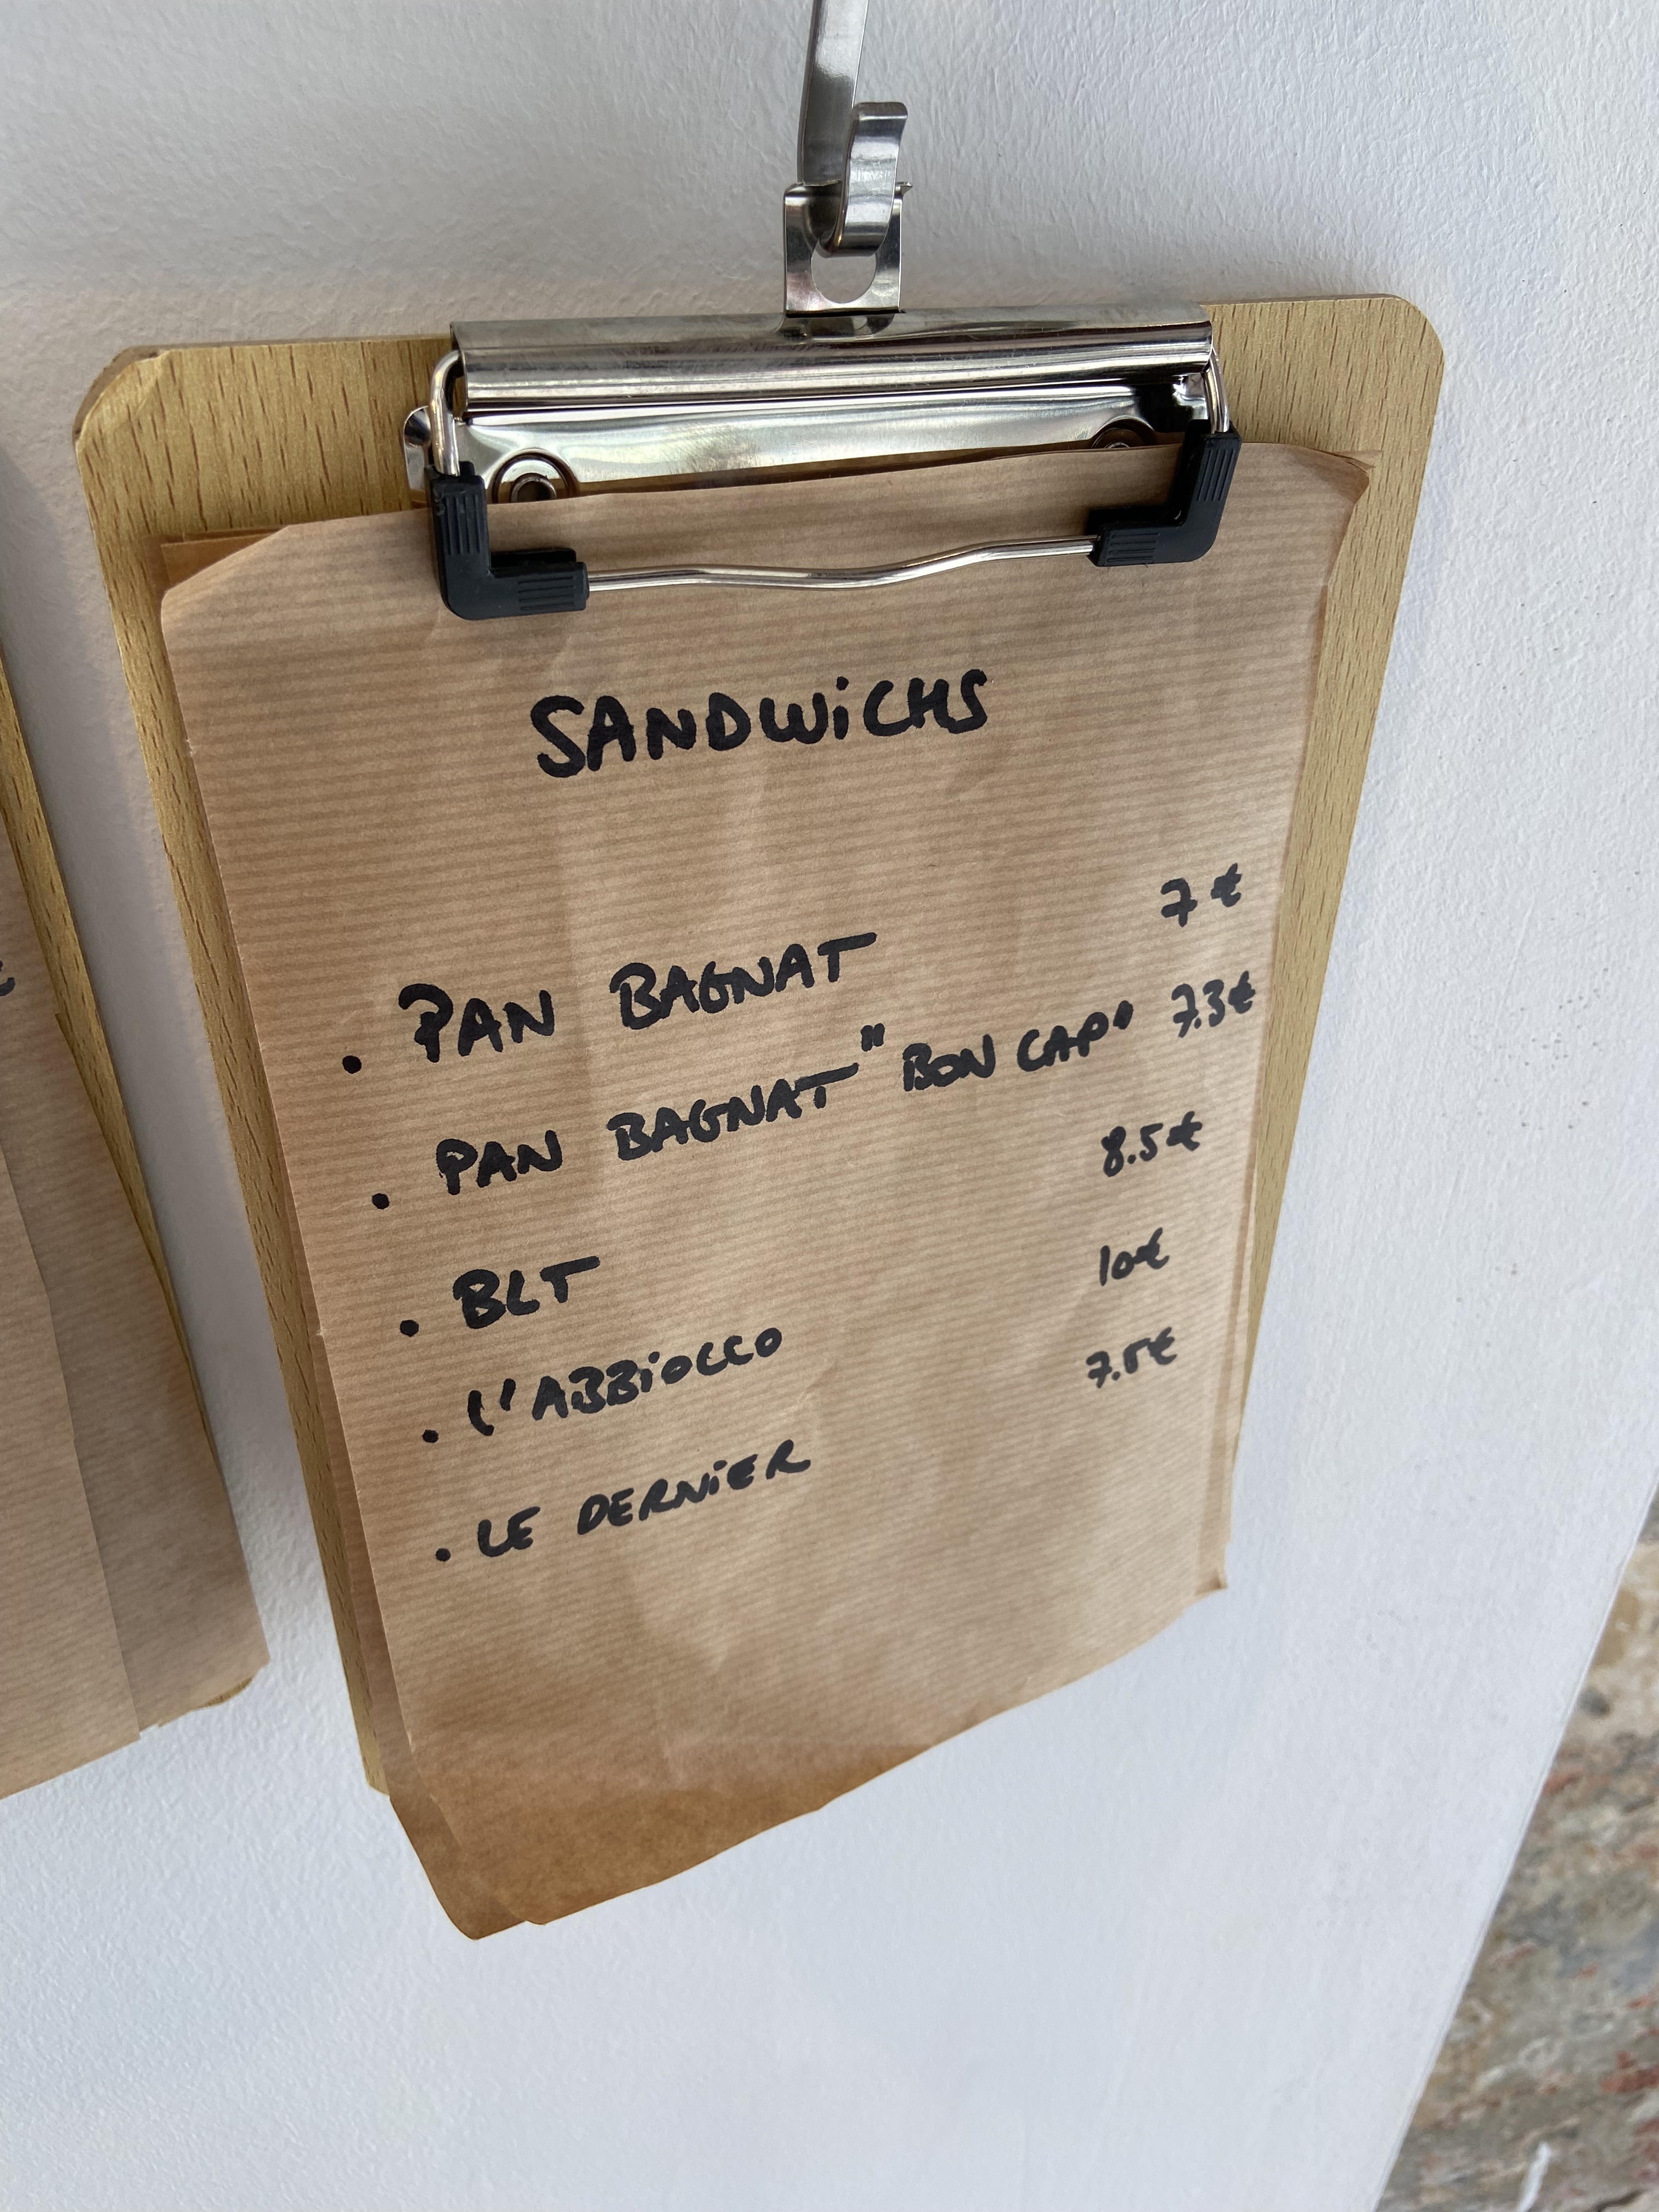 SANDWiCHS
. PAN BAGNAT 7 €
. PAN BAGNAT "BON CAP" 7.3€
. BLT 8.5€
. L'ABBiOCCO 10€
. LE DERNiER 7.5€